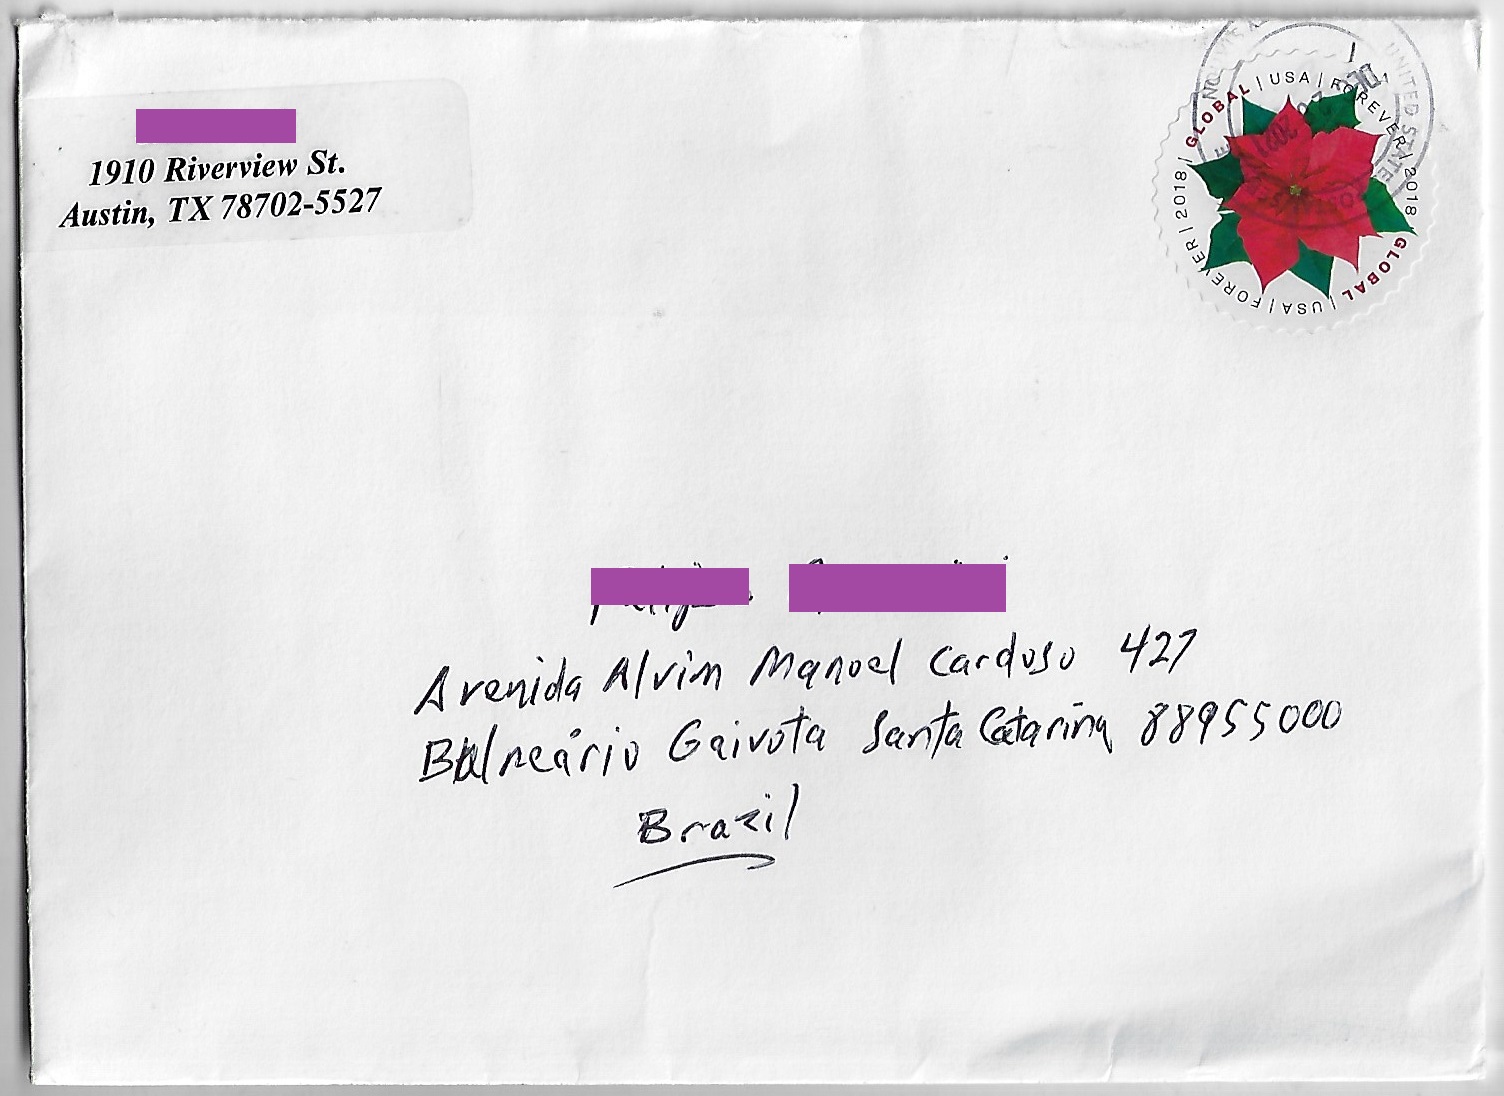 1910 Riverview St.
Austin, TX 78702-5527
GLOBAL | USA | FOREVER | 2018
GLOBAL | USA | FOREVER | 2018 |
UNITED STATE
Avenida Alvim Manoel Cardoso 427
Balneário Gaivota Santa Catarina 88955000
Brazil